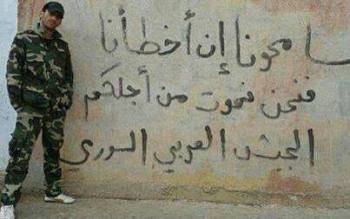 سامحونا إن أخطأنا
فنحن نموت من أجلكم
الجيش العربي السوري